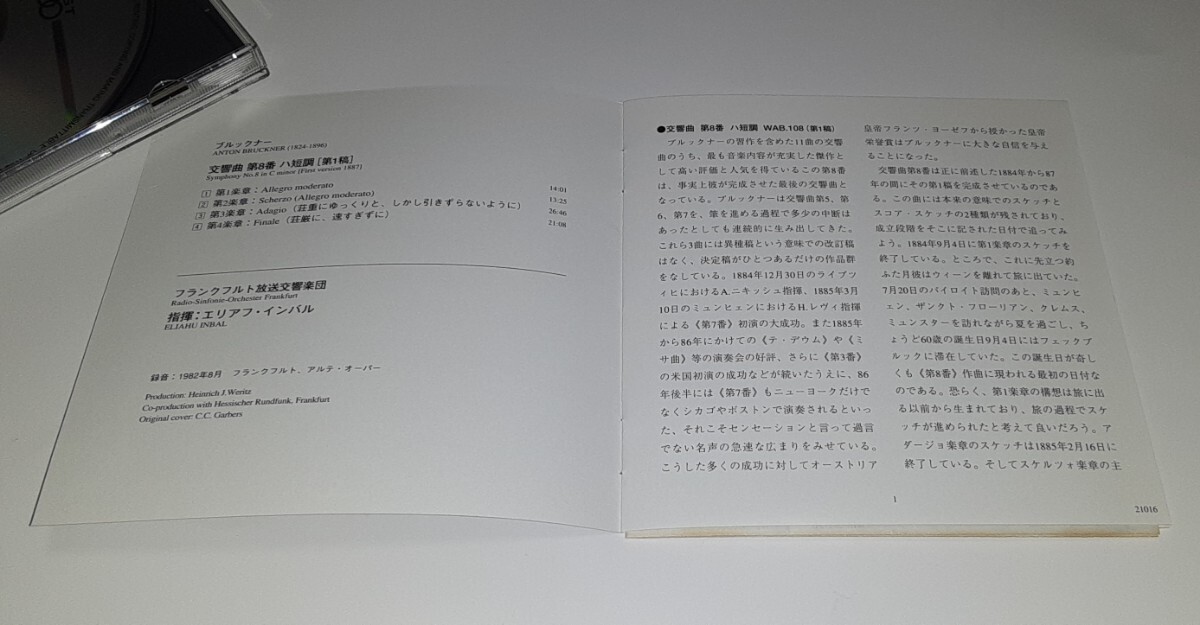 ブルックナー
ANTON BRUCKNER (1824-1896)
交響曲 第8番 ハ短調［第1稿］
Symphony No.8 in C minor [First version 1887]
1 第1楽章：Allegro moderato 14:01
2 第2楽章：Scherzo (Allegro moderato) 13:25
3 第3楽章：Adagio（荘重にゆっくりと、しかし引きずらないように） 26:46
4 第4楽章：Finale（荘厳に、速すぎずに） 21:08
フランクフルト放送交響楽団
Radio-Sinfonie-Orchester Frankfurt
指揮：エリアフ・インバル
ELIAHU INBAL
録音：1982年8月 フランクフルト、アルテ・オーパー
Production: Heinrich J.Weritz
Co-production with Hessischer Rundfunk, Frankfurt
Original cover: C.C. Garbers
●交響曲 第8番 ハ短調 WAB.108［第1稿］
ブルックナーの習作を含めた11曲の交響
曲のうち、最も音楽内容が充実した傑作と
して高い評価と人気を得ているこの第8番
は、事実上彼が完成させた最後の交響曲と
なっている。ブルックナーは交響曲第5、第
6、第7を、筆を進める過程で多少の中断は
あったとしても連続的に生み出してきた。
これら3曲には異種稿という意味での改訂稿
はなく、決定稿がひとつあるだけの作品群
をなしている。1884年12月30日のライプツ
ィヒにおけるA.ニキッシュ指揮、1885年3月
10日のミュンヒェンにおけるH.レヴィ指揮
による《第7番》初演の大成功。また1885年
から86年にかけての《テ・デウム》や《ミ
サ曲》等の演奏会の好評、さらに《第3番》
の米国初演の成功などが続いたうえに、86
年後半には《第7番》もニューヨークだけで
なくシカゴやボストンで演奏されるといっ
た、それこそセンセーションと言って過言
でない名声の急速な広まりをみせている。
こうした多くの成功に対してオーストリア
皇帝フランツ・ヨーゼフから授かった皇帝
栄誉賞はブルックナーに大きな自信を与え
ることになった。
交響曲第8番は正に前述した1884年から87
年の間にその第1稿を完成させているのであ
る。この曲には本来の意味でのスケッチと
スコア・スケッチの2種類が残されており、
成立段階をそこに記された日付で追ってみ
よう。1884年9月4日に第1楽章のスケッチを
終了している。ところで、これに先立つ約
ふた月彼はウィーンを離れて旅に出ていた。
7月20日のバイロイト訪問のあと、ミュンヒ
ェン、ザンクト・フローリアン、クレムス、
ミュンスターを訪れながら夏を過ごし、ち
ょうど60歳の誕生日9月4日にはフェックブ
ルックに滞在していた。この誕生日が奇し
くも《第8番》作曲に現われる最初の日付な
のである。恐らく、第1楽章の構想は旅に出
る以前から生まれており、旅の過程でスケ
ッチが進められたと考えて良いだろう。ア
ダージョ楽章のスケッチは1885年2月16日に
終了している。そしてスケルツォ楽章の主
1
21016